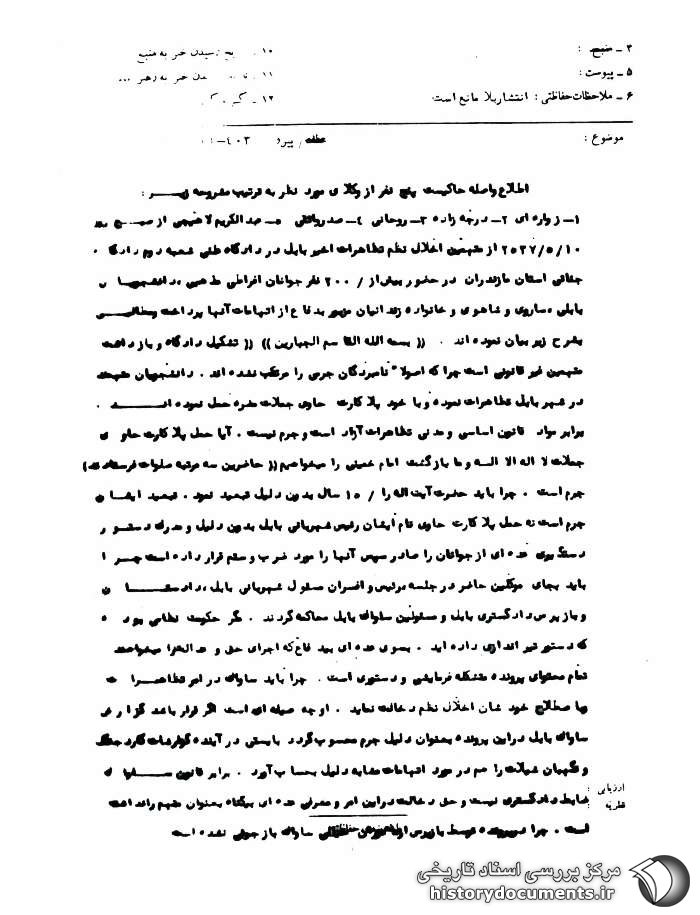 ۴ ـ منبع :
۵ ـ پیوست :
۶ ـ ملاحظات حفاظتی : انتشار بلا مانع است
۱۰ رسیدن خبر به منبع
۱۱ خبر به رهبر ...
۱۲ ـ
موضوع :
اطلاع واصله حاکیست پنج نفر از وکلای مورد نظر به ترتیب مشروحه زیر :
۱ـ زواره ای ۲ـ درچه زاده ۳ـ روحانی ۴ـ صدر واثقی ۵ـ عبدالکریم لاهیجی از صبح
۲۵۳۷/۵/۱۰ از متهمین اخلال نظم تظاهرات اخیر بابل در دادگاه علنی شعبه دوم دادگاه
جنائی استان مازندران در حضور بیش از / ۲۰۰ نفر جوانان افراطی مذهبی ، دانشجویان
بابلی ، ساروی و شاهوی و خانواده زندانیان مزبور بدفاع از اتهامات آنها پرداخت و مطالبی
بشرح زیر بیان نموده اند . (( بسمه الله القاسم الجبارین )) (( تشکیل دادگاه و بازداشت
متهمین غیر قانونی است چرا که اصولا" نامبردگان جرمی را مرتکب نشده اند . دانشجویان
در شهر بابل تظاهرات نموده و با خود پلاکارت حاوی جملات حمل نموده اند .
برابر مواد قانون اساسی و مدنی تظاهرات آزاد است و جرم نیست . آیا حمل پلاکارت حاوی
جملات لا اله الا الله و ما بازگشت امام خمینی را میخواهیم (( حاضرین سه مرتبه صلوات فرستادند)
جرم است . چرا باید حضرت آیت اله را / ۱۵ سال بدون دلیل تبعید نمود . تبعید ایشان
جرم است نه حمل پلاکارت حاوی نام ایشان رئیس شهربانی بابل بدون دلیل و مدرک دستور
دستگیری عده ای از جوانان را صادر سپس آنها را مورد ضرب و ستم قرار داده است چرا
باید بجای موکلین حاضر در جلسه رئیس و افسران مسئول شهربانی بابل ، دادستان
و بازپرس دادگستری بابل و مسئولین ساواک بابل محاکمه گردند . مگر حکومت نظامی بوده
که دستور تیراندازی داده اید . بسوی عده ای بیدفاع که اجرای حق و عدالت را میخواهند
تمام محتوای پرونده متشکله فرمایشی و دستوری است . چرا باید ساواک در امر تظاهرات
بنا بمطلاح خودشان اخلال نظم دخالت نماید . او چه صیغه ای است اگر قرار باشد گزارش
ساواک بابل در این پرونده بعنوان دلیل جرم محسوب گردد بایستی در آینده گزارشات گارد جنگل
و نگهبان شیلات را هم در مورد اتهامات مشابه دلیل بحساب آورد . برابر قانون
ضابط دادگستری نیست و حق دخالت در این امر و معرفی عده ای بیگناه بعنوان متهم را نداشته
است . چرا در پرونده توسط بازپرس از ساواک بازجوئی نشده است
ارزیابی :
نظریه :
مرکز بررسی اسناد تاریخی
historydocuments.ir